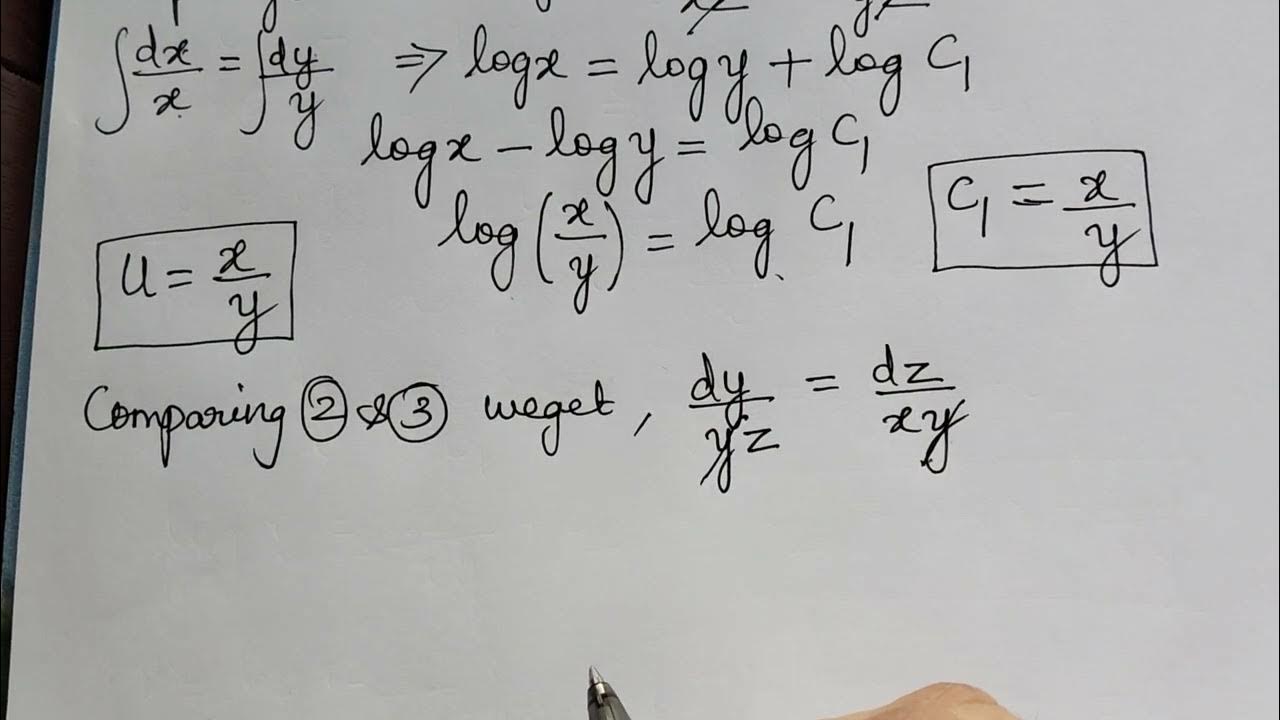 ∫dx/x = ∫dy/y ⇒ log x = log y + log C₁
log x − log y = log C₁
log(x/y) = log C₁
C₁ = x/y
U = x/y
Comparing ② & ③ weget, dy/yz = dz/xy